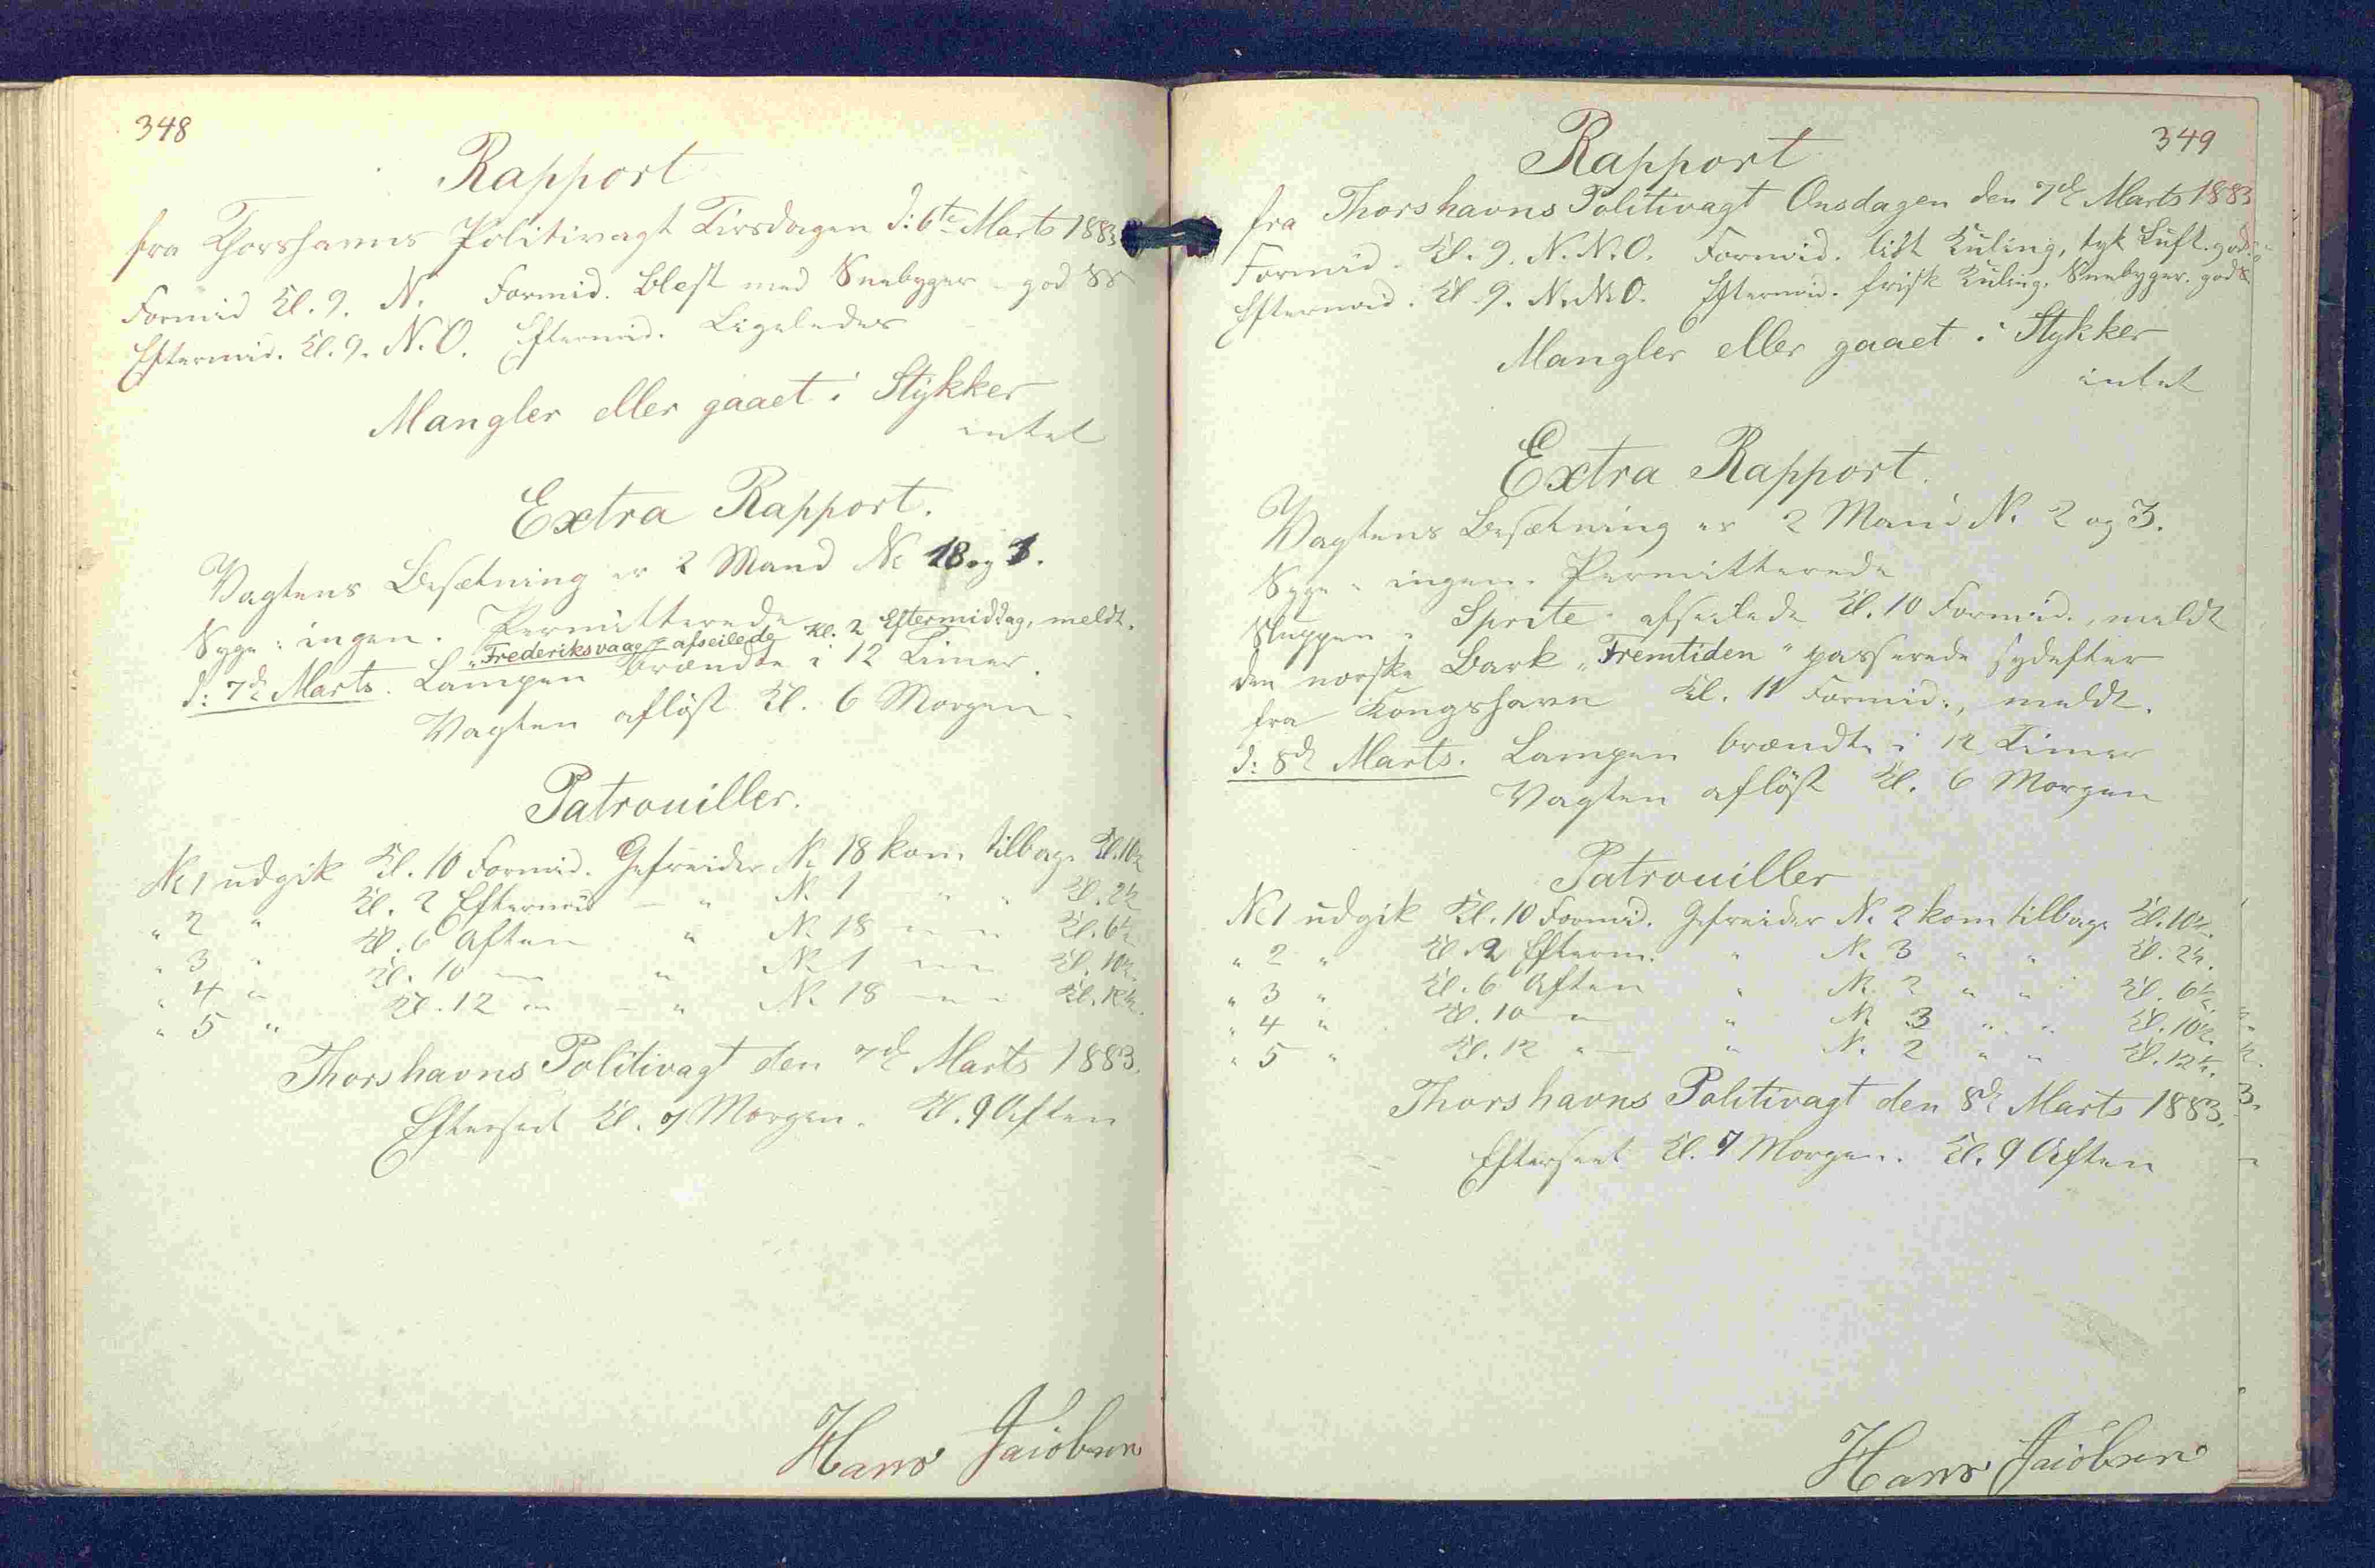 348
Rapport
fra Thorshavns Politivagt Tirsdagen d: 6te Marts 1883
Formid Kl. 9. N. Formid. Blest med Sneebyger - god
Eftermid. Kl. 9. N.O. Eftermid. Ligeledes
Mangler eller gaaet i Stykker
intet
Extra Rapport.
Vagtens Besætning er 2 Mand No 18 og 1.
Syge: ingen. Permitterede
"Frederiksvaag" afseilede Kl. 2 Eftermiddag, meldt.
d: 7de Marts. Lampen brændte i 12 Timer.
Vagten afløst Kl. 6 Morgen.
Patrouiller.
No 1 udgik Kl. 10 Formid. Gefreider No 18 kom tilbage Kl. 10½
" 2 " Kl. 2 Eftermid — " No 1 " " Kl. 2½
" 3 " Kl. 6 Aften " No 18 " " Kl. 6½
" 4 " Kl. 10 — " No 1 " " Kl. 10½.
" 5 " Kl. 12 " — " No 18 " " Kl. 12½.
Thorshavns Politivagt den 7de Marts 1883.
Efterseet Kl. 7 Morgen. Kl. 9 Aften
Hans Jacobsen
349
Rapport
fra Thorshavns Politivagt Onsdagen den 7de Marts 1883
Formid. Kl. 9. N.N.O. Formid. lidt Kuling, tyk Luft. god
Eftermid. Kl. 9. N.N.O. Eftermid. frisk Kuling, Sneebyger. god
Mangler eller gaaet i Stykker
intet
Extra Rapport.
Vagtens Besætning er 2 Mand No. 2 og 3.
Syge: ingen. Permitterede
Sluppen " Sprite afseilede Kl. 10 Formid., meldt
den norske Bark "Fremtiden" passerede sydefter
fra Kongshavn Kl. 11 Formid., meldt.
d: 8de Marts. Lampen brændte i 12 Timer
Vagten afløst Kl. 6 Morgen
Patrouiller
No 1 udgik Kl. 10 Formid. Gefreider No. 2 kom tilbage Kl. 10½.
" 2 " Kl. 2 Efterm. " No. 3 " " Kl. 2½.
" 3 " Kl. 6 Aften " No. 2 " " Kl. 6½.
" 4 " Kl. 10 " — " No. 3 " " Kl. 10½.
" 5 " Kl. 12 " — " No. 2 " " Kl. 12½.
Thorshavns Politivagt den 8de Marts 1883.
Efterseet Kl. 7 Morgen. Kl. 9 Aften
Hans Jacobsen